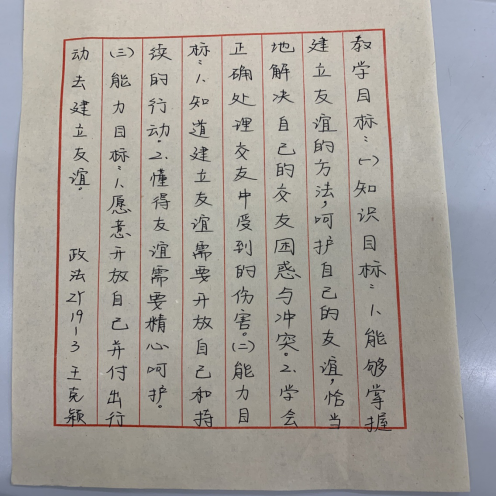 教学目标：(一)知识目标：1、能够掌握
建立友谊的方法，呵护自己的友谊，恰当
地解决自己的交友困惑与冲突。2、学会
正确处理交友中受到的伤害。(二)能力目
标：1、知道建立友谊需要开放自己和持
续的行动。2、懂得友谊需要精心呵护。
(三)能力目标：1、愿意开放自己并付出行
动去建立友谊。 政法ZY19-3 王克颖